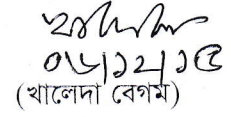 খালেদা
০৬/১২/১৫
(খালেদা বেগম)